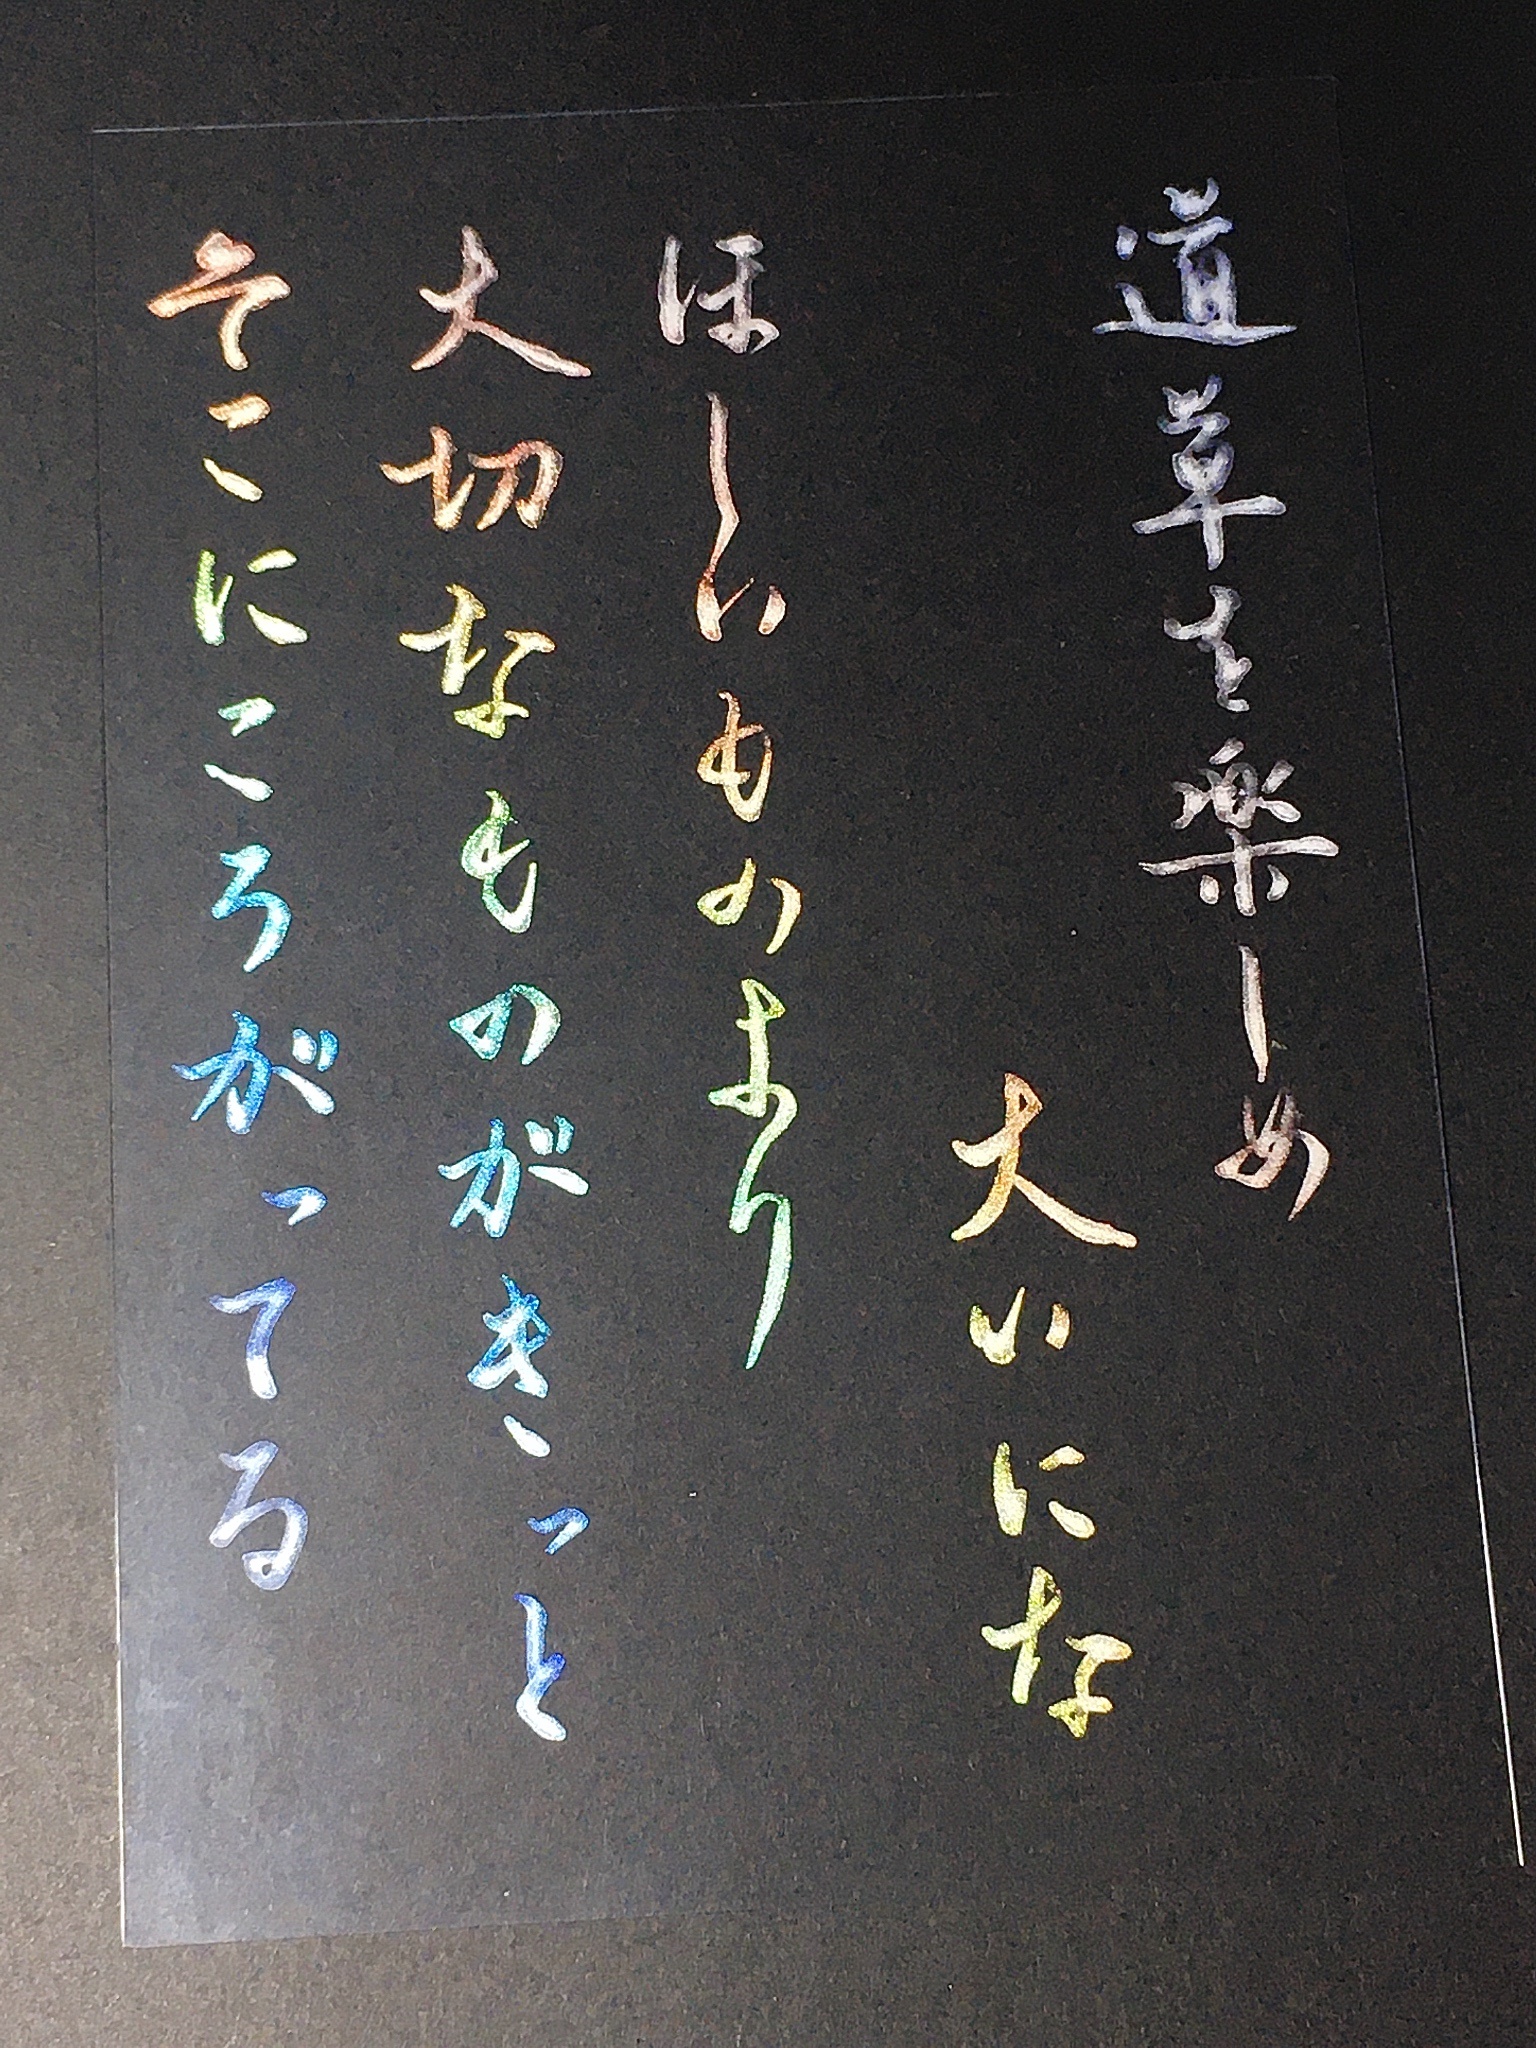 道草を楽しめ
大いにな
ほしいものより
大切なものがきっと
そこにころがってる